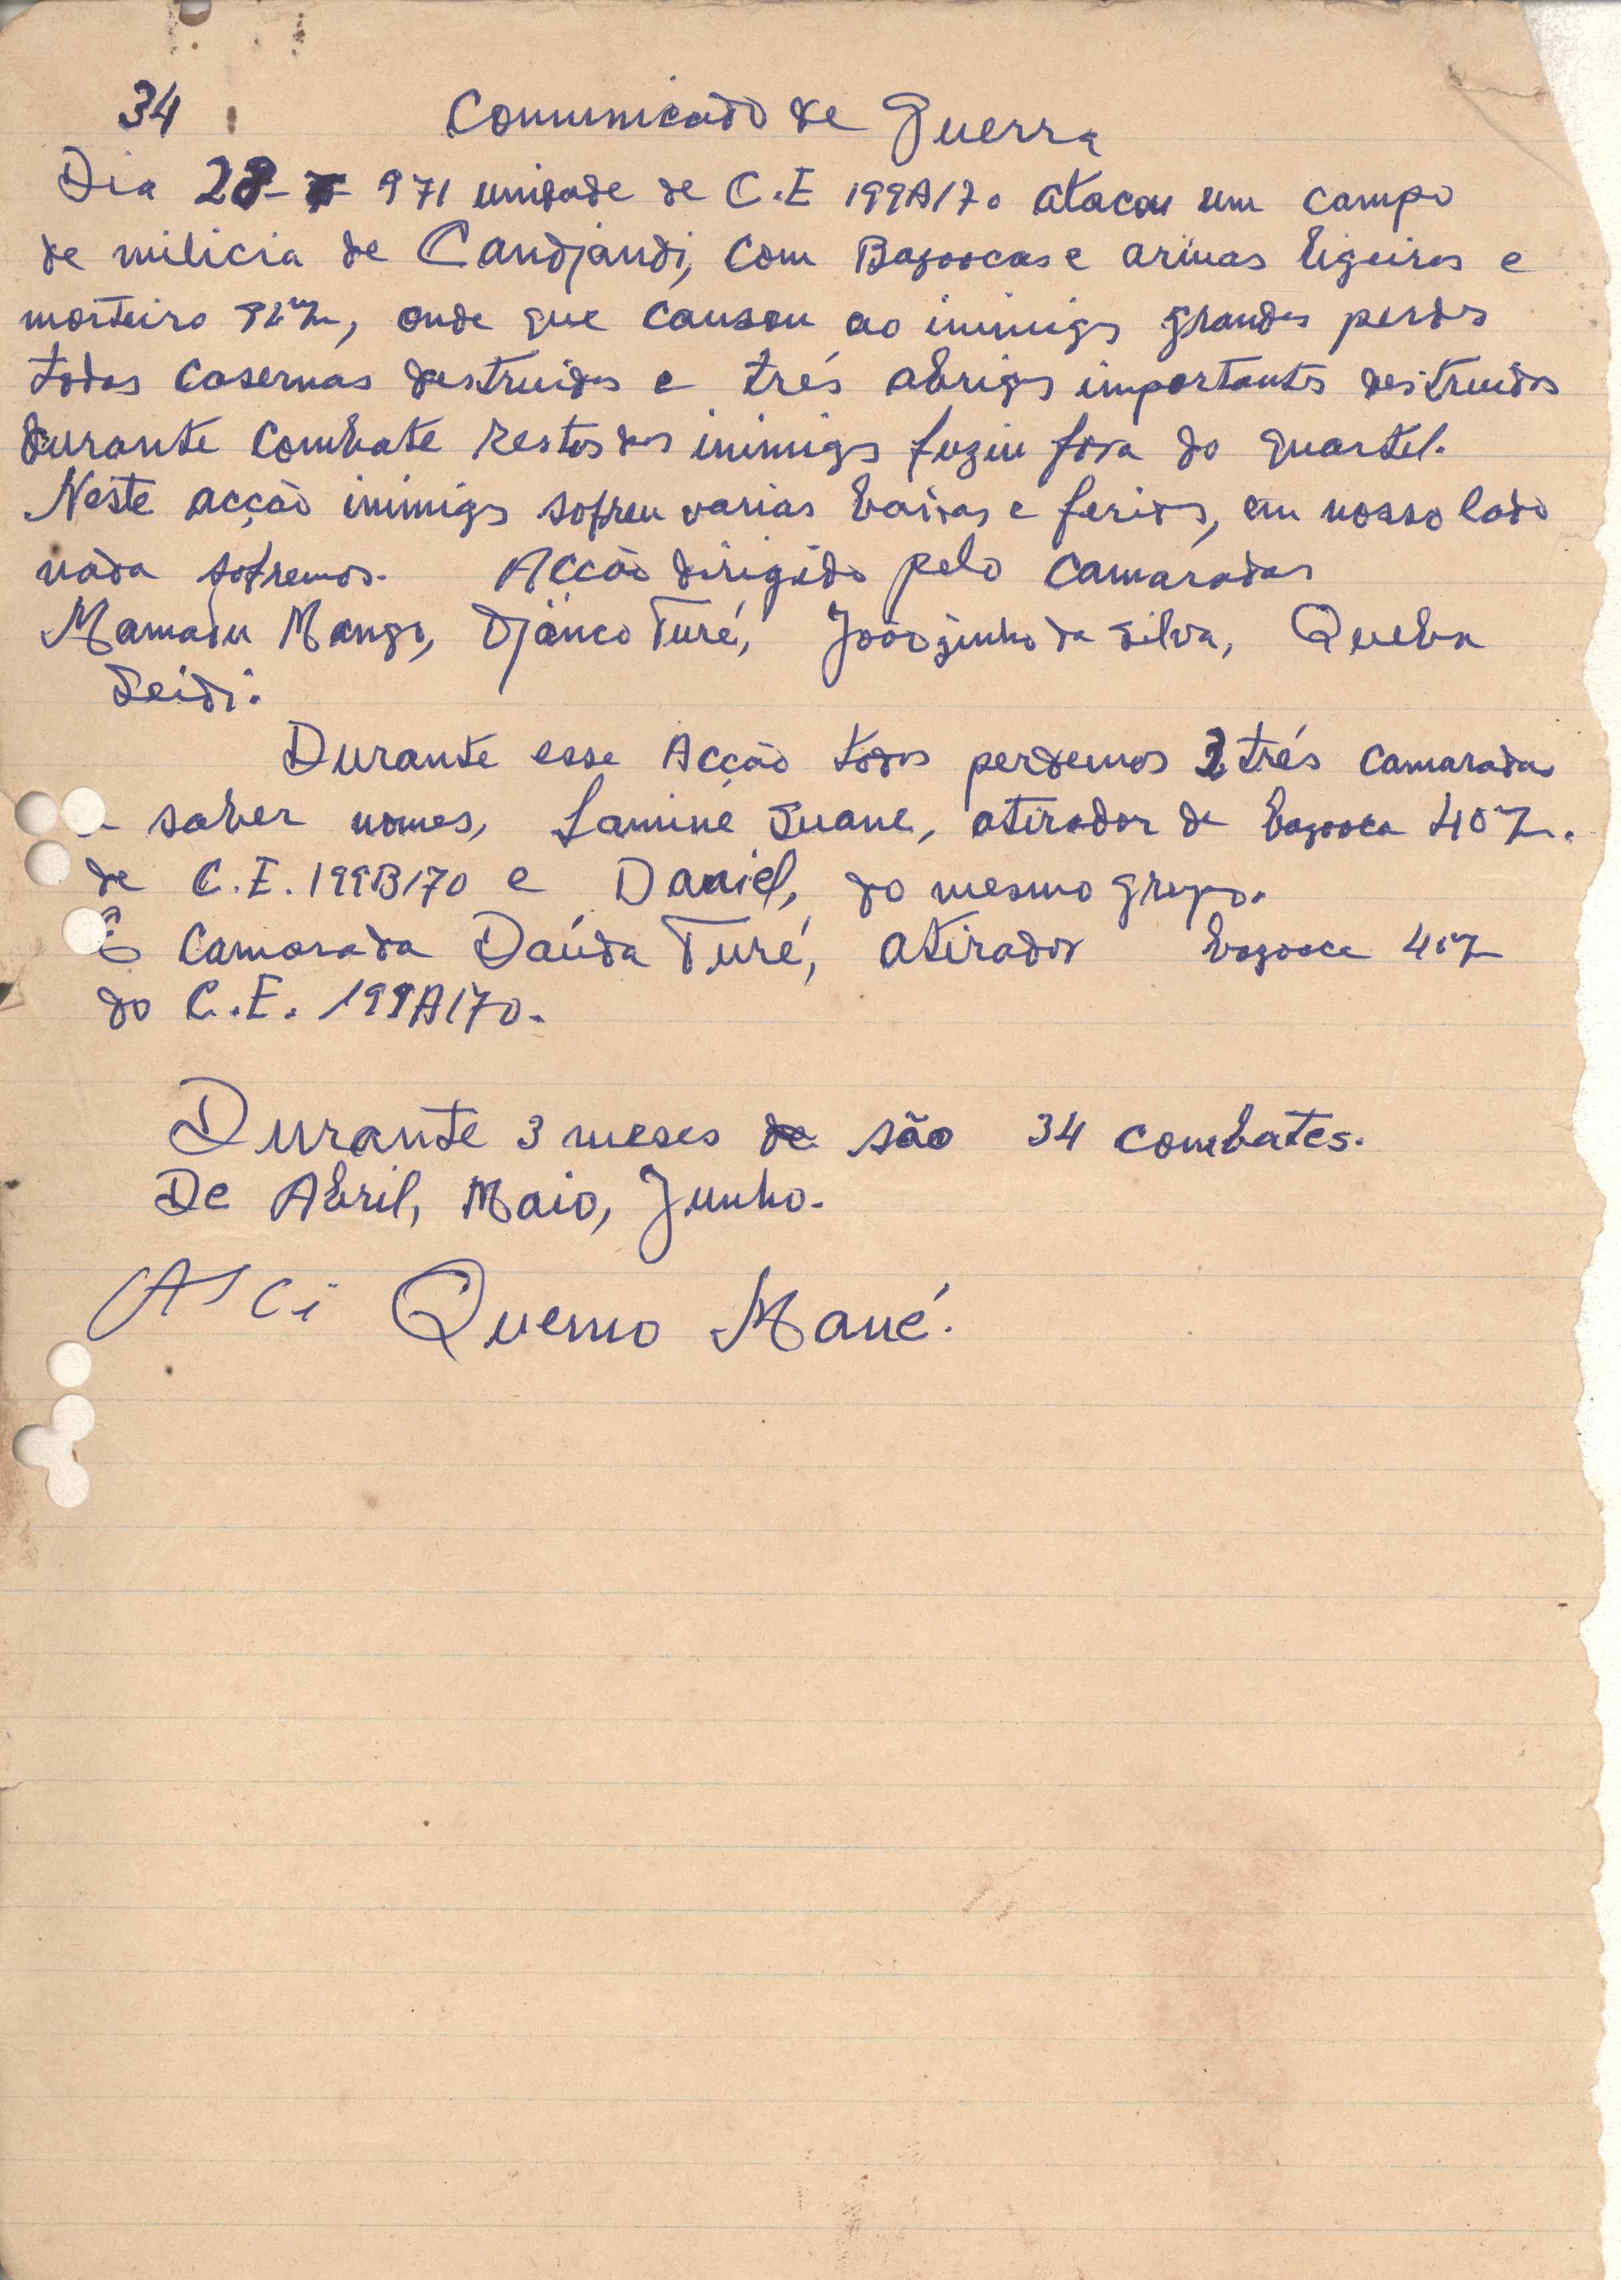 34 Comunicado de Guerra
Dia 28- 971 unidade de C.E 199A/70 atacou um campo
de milicia de Candjandi, com Bazoocas e armas ligeiras e
morteiro onde que causou ao inimigo grandes perdas
todas casernas destruidas e três abrigos importantes destruidos
durante combate restos dos inimigos fugiu fora do quartel.
Neste acção inimigo sofreu varias baixas e feridos, em nosso lado
nada sofremos. Acção dirigido pelo camaradas
Mamadu Mango, Djanco Turé, Joãozinho da Silva, Queba
Seidi.
Durante esse Acção todos perdemos três camaradas
saber nomes, Laminé Suane, atirador de bazooca 40
de C.E. 199B/70 e Daniel, do mesmo grupo.
E camarada Daúda Turé, atirador bazooca 40
do C.E. 199A/70.
Durante 3 meses de são 34 combates.
De Abril, Maio, Junho.
Quemo Mané.